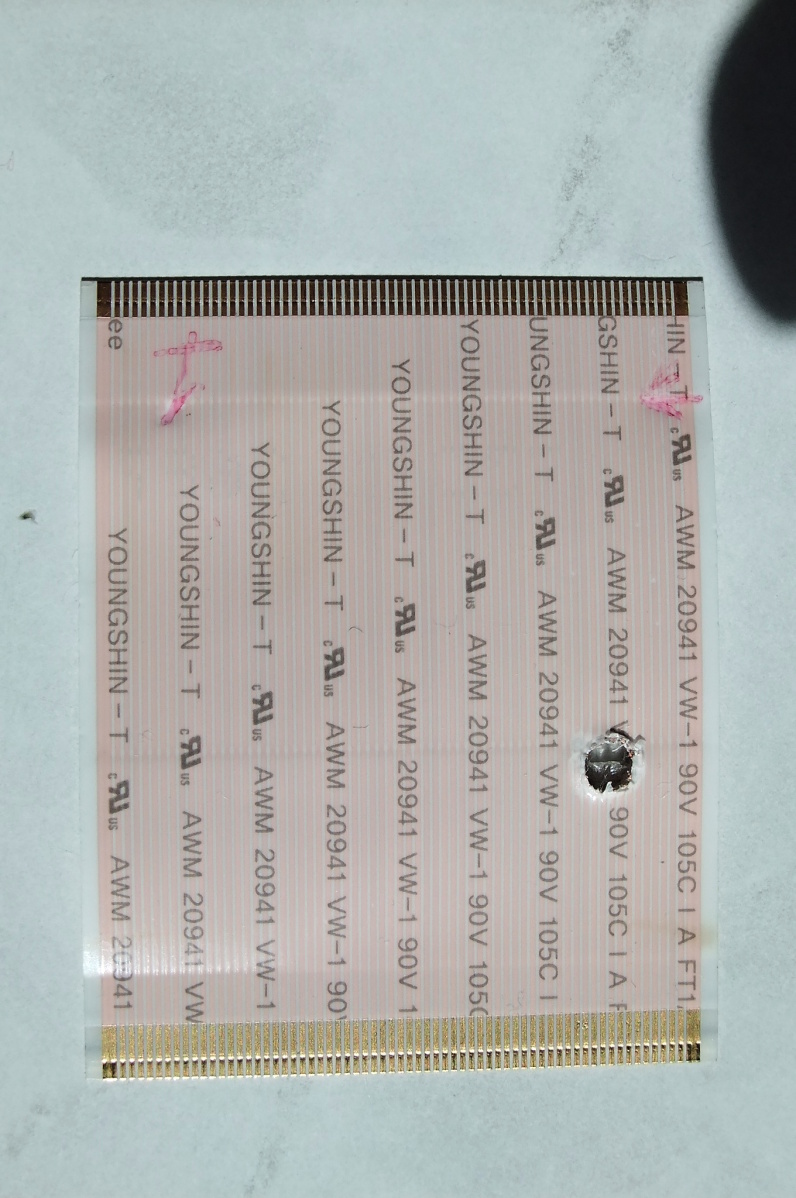 HIN – T c RU us AWM 20941 VW–1 90V 105C I A FT1
GSHIN – T c RU us AWM 20941 90V 105C I A F
UNGSHIN – T c RU us AWM 20941 VW–1 90V 105C I
YOUNGSHIN – T c RU us AWM 20941 VW–1 90V 105C
YOUNGSHIN – T c RU us AWM 20941 VW–1 90V 1
YOUNGSHIN – T c RU us AWM 20941 VW–1 90V
YOUNGSHIN – T c RU us AWM 20941 VW–1
YOUNGSHIN – T c RU us AWM 20941 VW
ee YOUNGSHIN – T c RU us AWM 20941